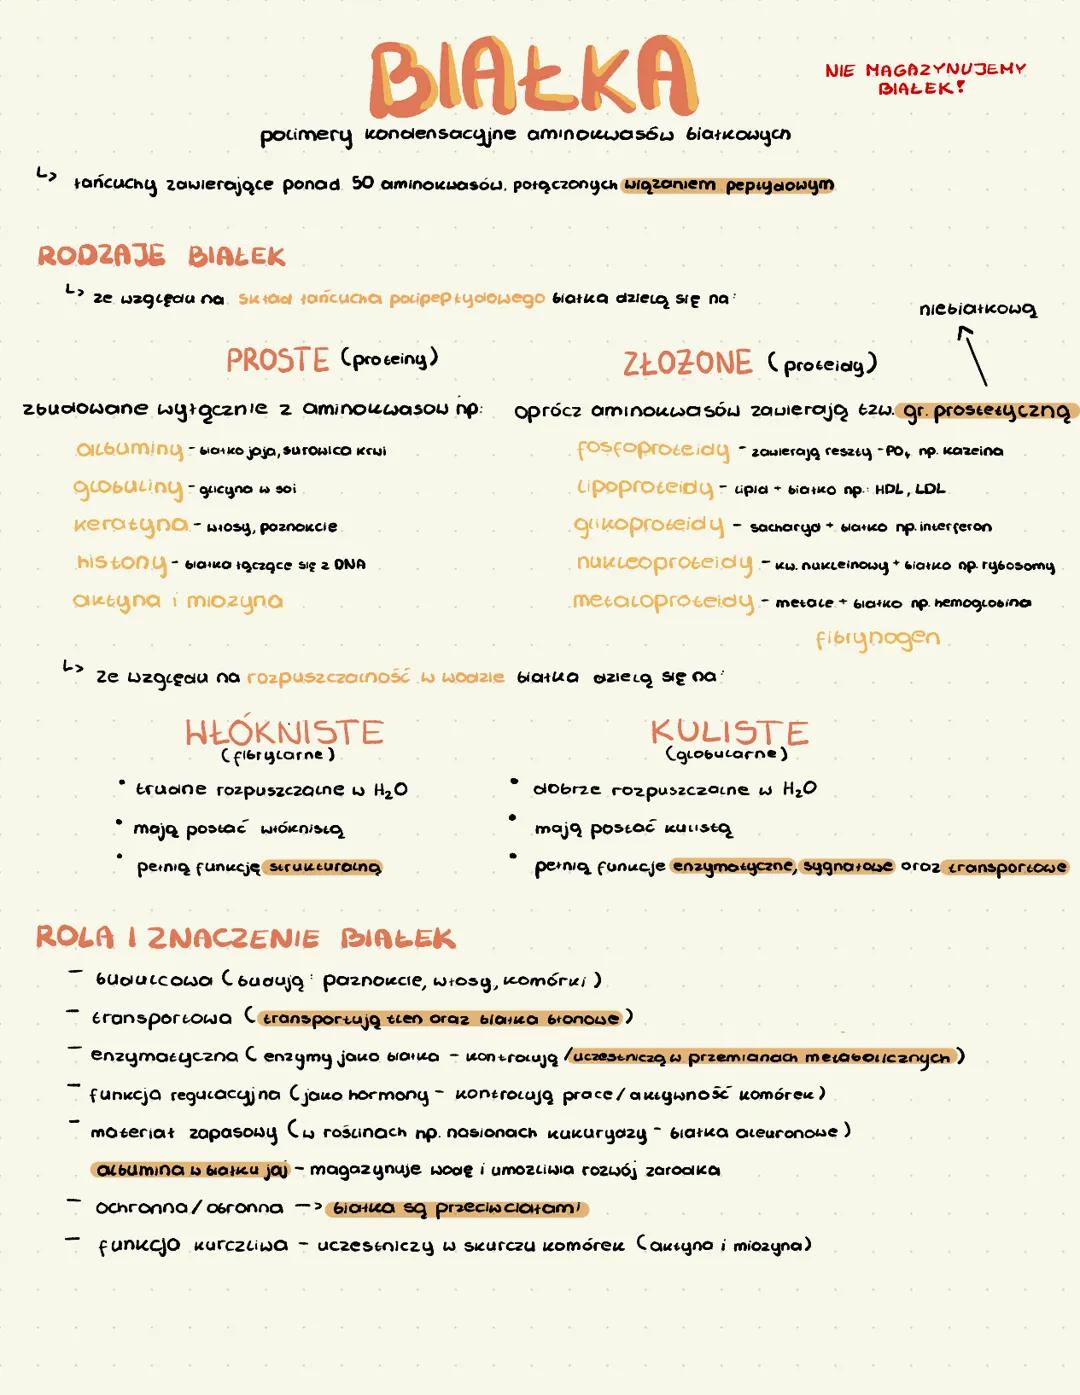 BIAŁKA
NIE MAGAZYNUJEMY
BIAŁEK!
polimery kondensacyjne aminokwasów białkowych
↳ łańcuchy zawierające ponad 50 aminokwasów, połączonych wiązaniem peptydowym
RODZAJE BIAŁEK
↳ ze względu na skład łańcucha polipeptydowego białka dzielą się na:
niebiałkową
PROSTE (proteiny)
ZŁOŻONE (proteidy)
zbudowane wyłącznie z aminokwasów np:
oprócz aminokwasów zawierają tzw. gr. prostetyczną
albuminy - białko jaja, surowica krwi
globuliny - glicyna w soi
keratyna - włosy, paznokcie
histony - białka łączące się z DNA
aktyna i miozyna
fosfoproteidy - zawierają reszty -PO₄ np. kazeina
lipoproteidy - lipid + białko np.: HDL, LDL
glikoproteidy - sacharyd + białko np. interferon
nukleoproteidy - kw. nukleinowy + białko np. rybosomy
metaloproteidy - metale + białko np. hemoglobina
fibrynogen
↳ ze względu na rozpuszczalność w wodzie białka dzielą się na:
WŁÓKNISTE
(fibrylarne)
• trudne rozpuszczalne w H₂O
• mają postać włóknistą
• pełnią funkcję strukturalną
KULISTE
(globularne)
• dobrze rozpuszczalne w H₂O
• mają postać kulistą
• pełnią funkcje enzymatyczne, sygnałowe oraz transportowe
ROLA I ZNACZENIE BIAŁEK
- budulcowa (budują: paznokcie, włosy, komórki)
- transportowa (transportują tlen oraz białka błonowe)
- enzymatyczna (enzymy jako białka - kontrolują /uczestniczą w przemianach metabolicznych)
- funkcja regulacyjna (jako hormony - kontrolują prace/aktywność komórek)
- materiał zapasowy (w roślinach np. nasionach kukurydzy - białka aleuronowe)
albumina w białku jaj - magazynuje wodę i umożliwia rozwój zarodka
- ochronna/obronna -> białka są przeciwciałami
- funkcja kurczliwa - uczestniczy w skurczu komórek (aktyna i miozyna)